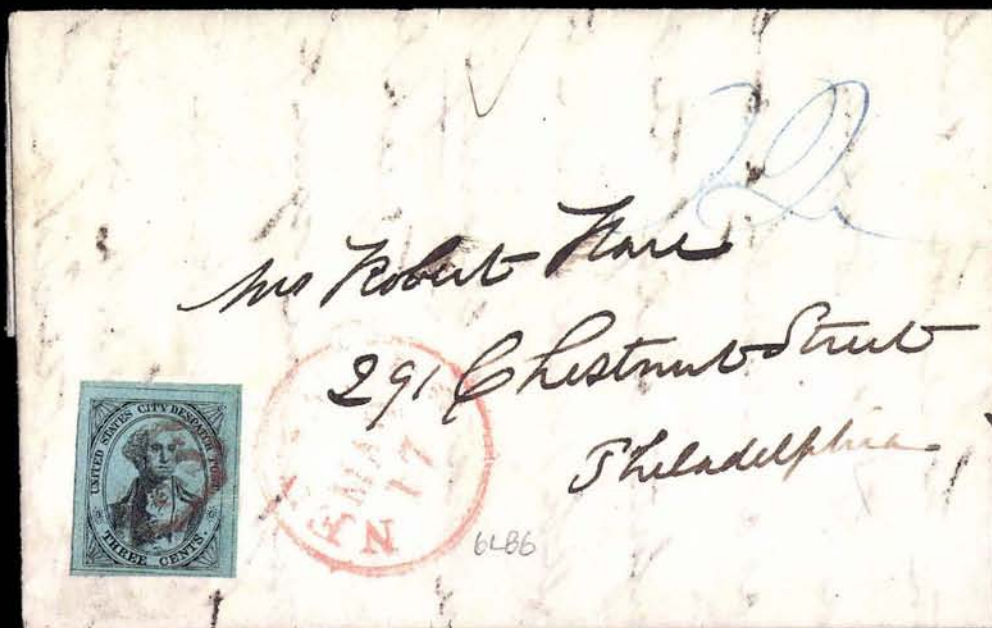 Mrs Robert Hare
291 Chestnut Street
Philadelphia
UNITED STATES CITY DESPATCH POST
THREE CENTS.
NEW
MAY
17
6LB6